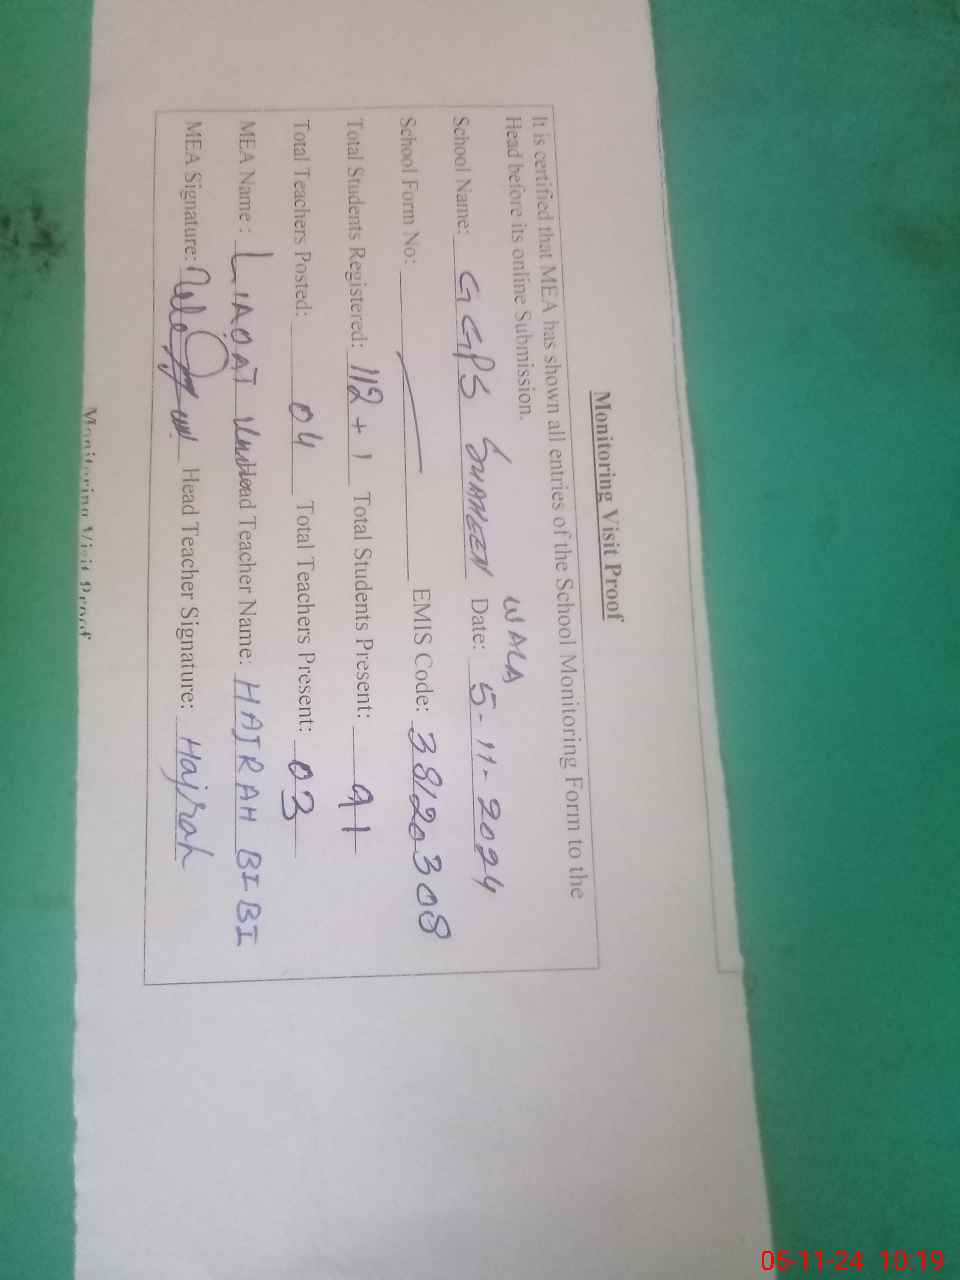 Monitoring Visit Proof
It is certified that MEA has shown all entries of the School Monitoring Form to the
Head before its online Submission.
WALA
School Name: GGPS SHAHEEN Date: 5-11-2024
School Form No: EMIS Code: 38120308
Total Students Registered: 112 + 1 Total Students Present: 91
Total Teachers Posted: 04 Total Teachers Present: 03
MEA Name : LIAQAT Head Teacher Name: HAJRAH BIBI
MEA Signature: Head Teacher Signature: Hajrah
Monitoring Visit Proof
05-11-24 10:19